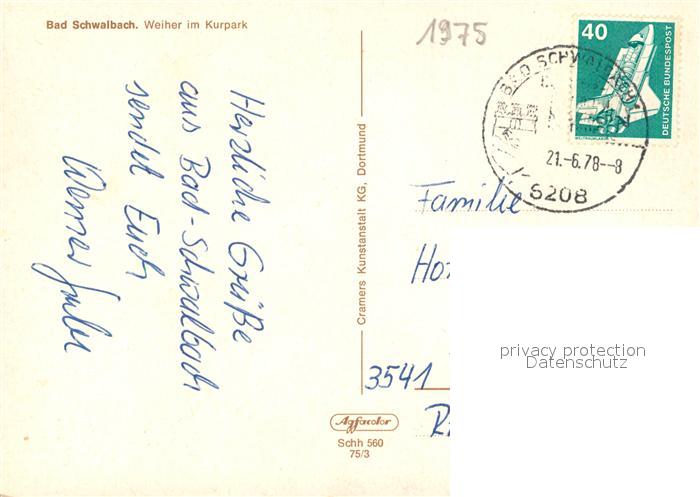 Bad Schwalbach. Weiher im Kurpark
1975
40
DEUTSCHE BUNDESPOST
BAD SCHWALBACH
21.-6.78--8
6208
Herzliche Grüße
aus Bad-Schwalbach
sendet Euch
Werner
Cramers Kunstanstalt KG, Dortmund
Familie
Ho
3541
R
privacy protection
Datenschutz
Agfacolor
Schh 560
75/3